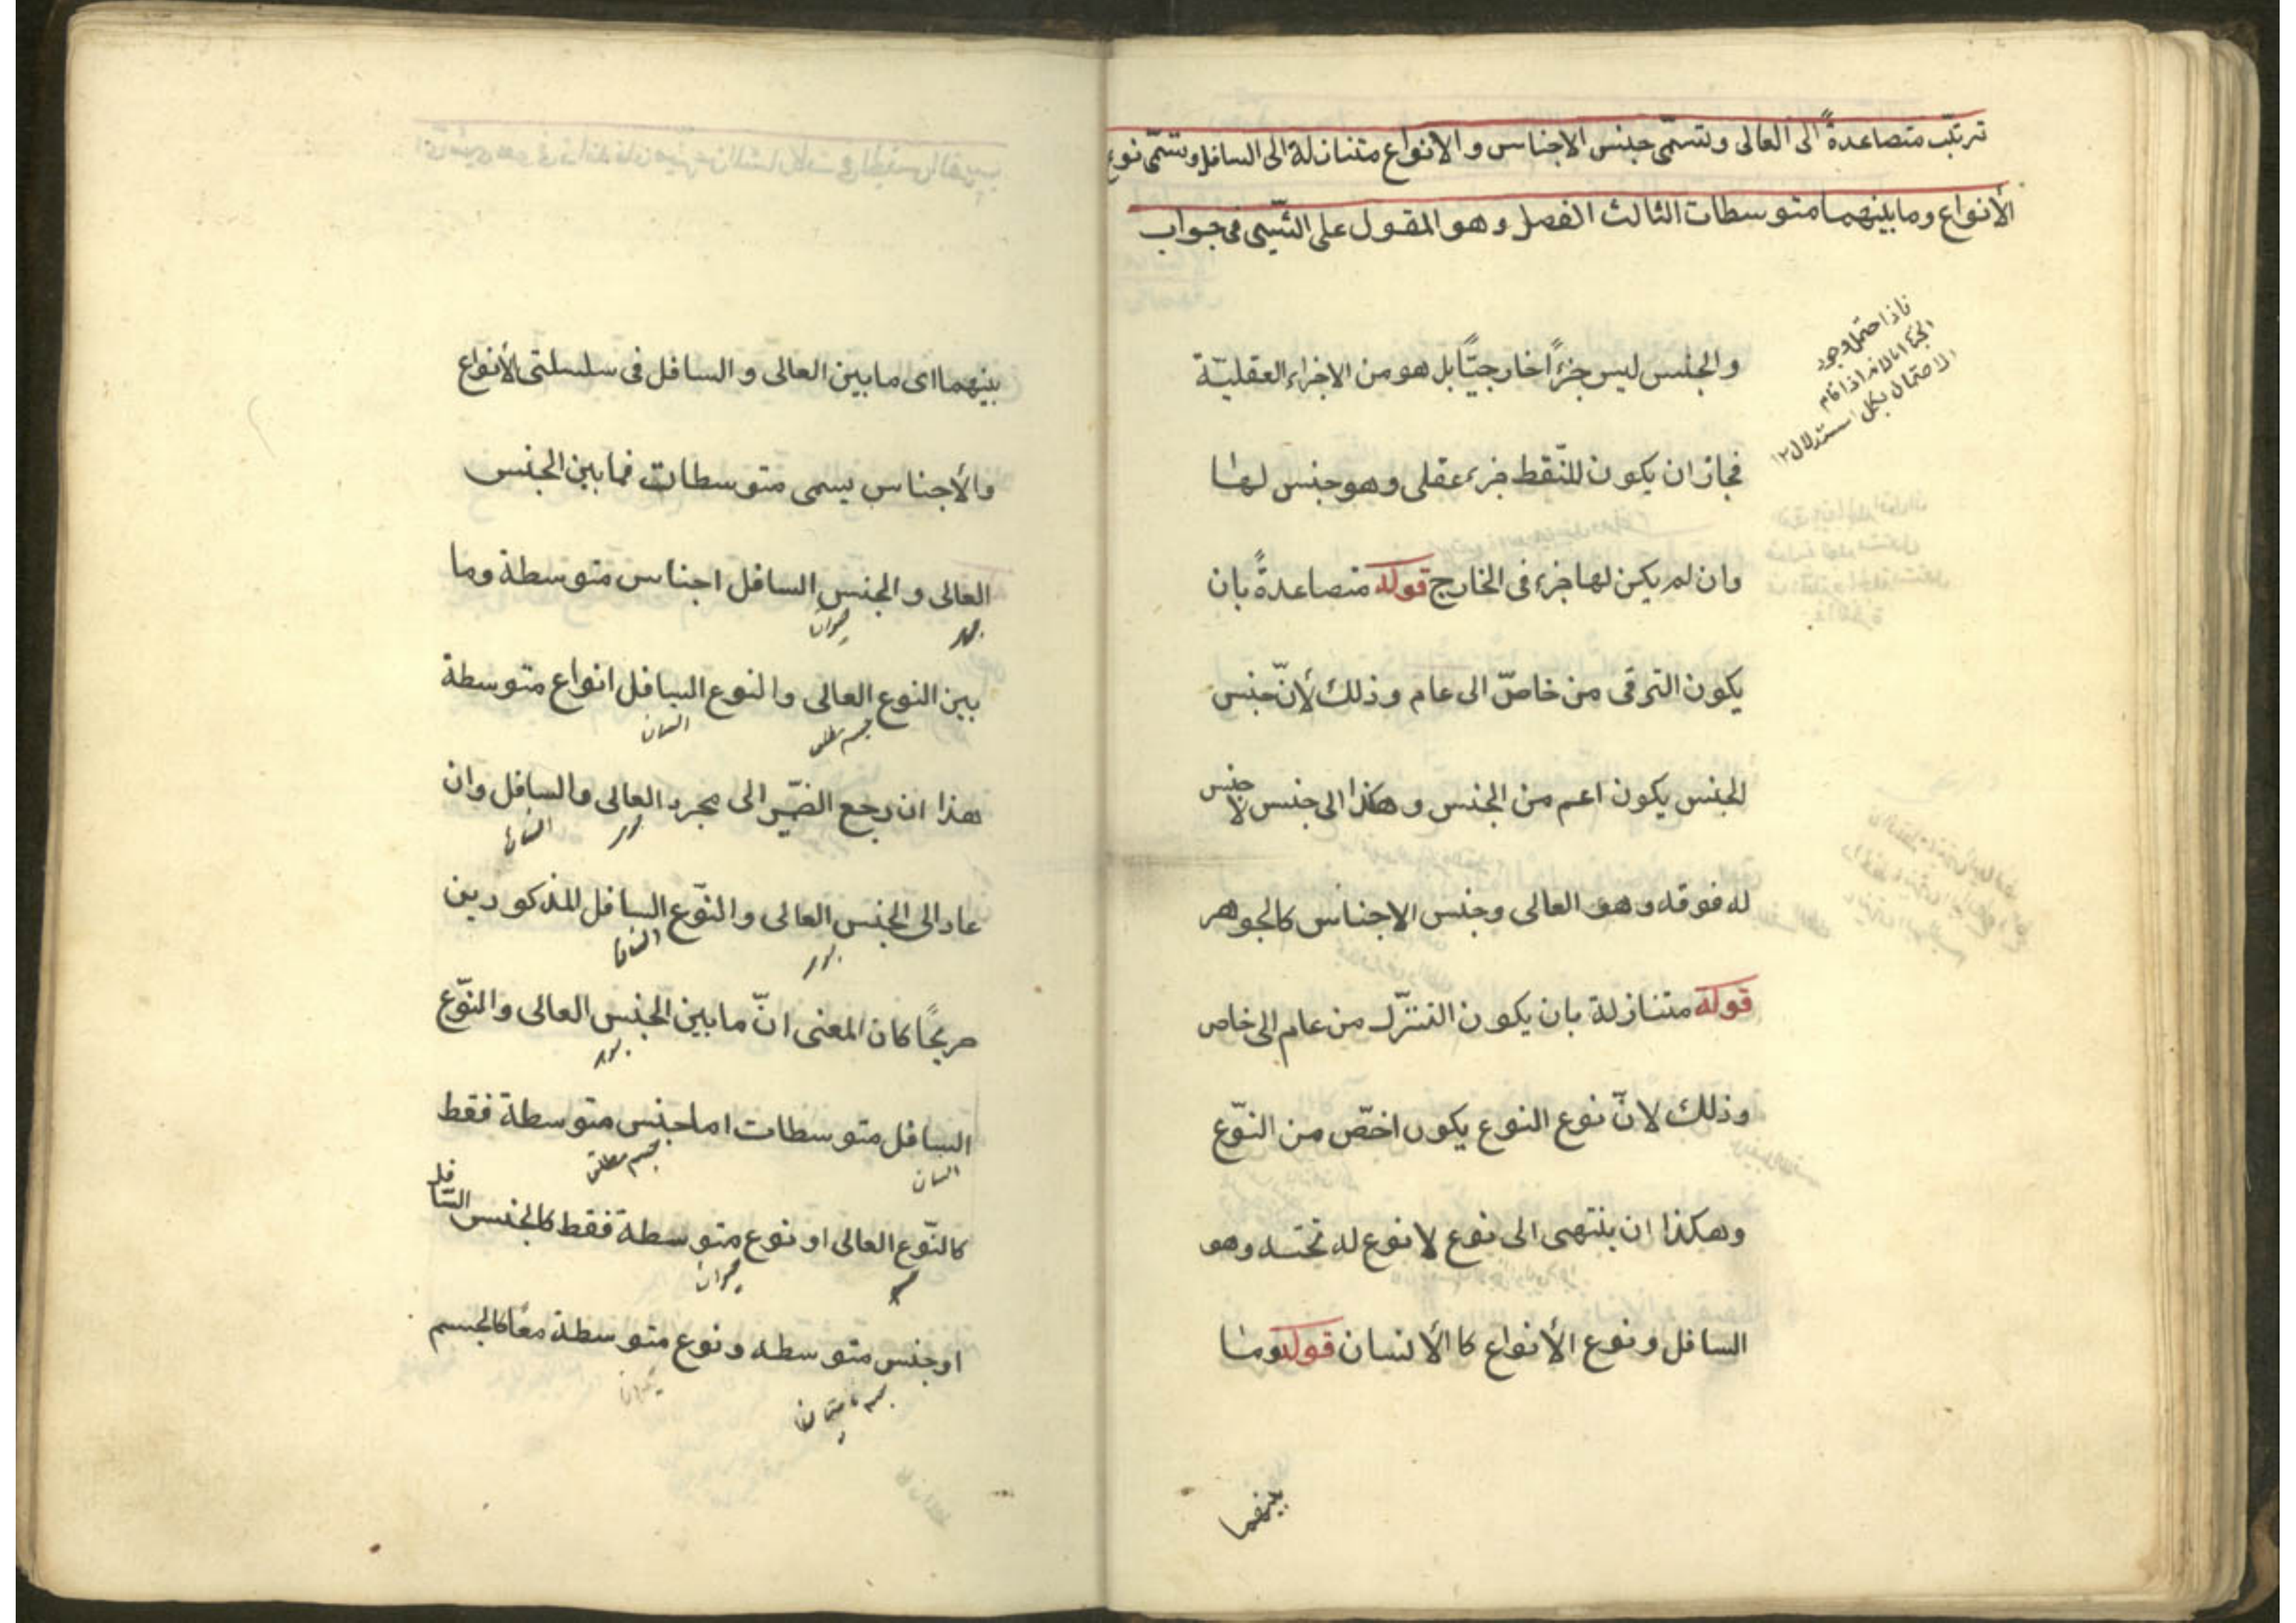 ترتّب متصاعدةً الى العالى وتسمّى جنس الاجناس و الانواع متنازلة الى السافل وتسمّى نوع
الأنواع وما بينهما متوسطات الثالث الفصل وهو المقول على الشىء فى جواب
الاحتمال بطل استدلال ١٢
والجنس ليس جزءًا خارجيًّا بل هو من الاجزاء العقليّة
فجاز ان يكون للنّقط جزء عقلى وهو جنس لها
وان لم يكن لها جزء فى الخارج قوله متصاعدةً بان
يكون الترقى من خاصّ الى عام وذلك لأنّ جنس
الجنس يكون اعم من الجنس و هكذا الى جنس لا جنس
له فوقه وهو العالى وجنس الاجناس كالجوهر
قوله متنازلة بان يكون التنزّل من عام الى خاص
وذلك لانّ نوع النوع يكون اخصّ من النّوع
وهكذا ان ينتهى الى نوع لا نوع له تحته وهو
السافل ونوع الأنواع كا الأنسان قوله وما
بينهما
بينهما اى ما بين العالى و السافل فى سلسلتى الأنواع
والأجناس يسمى متوسطات فما بين الجنس
العالى و الجنس السافل اجناس متوسطة وما
حيوان
بين النوع العالى والنوع السافل انواع متوسطة
جسم مطلق انسان
هذا ان رجع الضمّير الى مجرد العالى والسافل وان
عاد الى الجنس العالى والنوّع السافل المذكورين
صريحًا كان المعنى انّ ما بين الجنس العالى والنوّع
السافل متوسطات اما جنس متوسطة فقط
انسان جسم مطلق
كالنوّع العالى او نوع متوسطة فقط كالجنس السّافل
جسم حيوان
او جنس متوسطه ونوع متوسطة معًا كالجسم